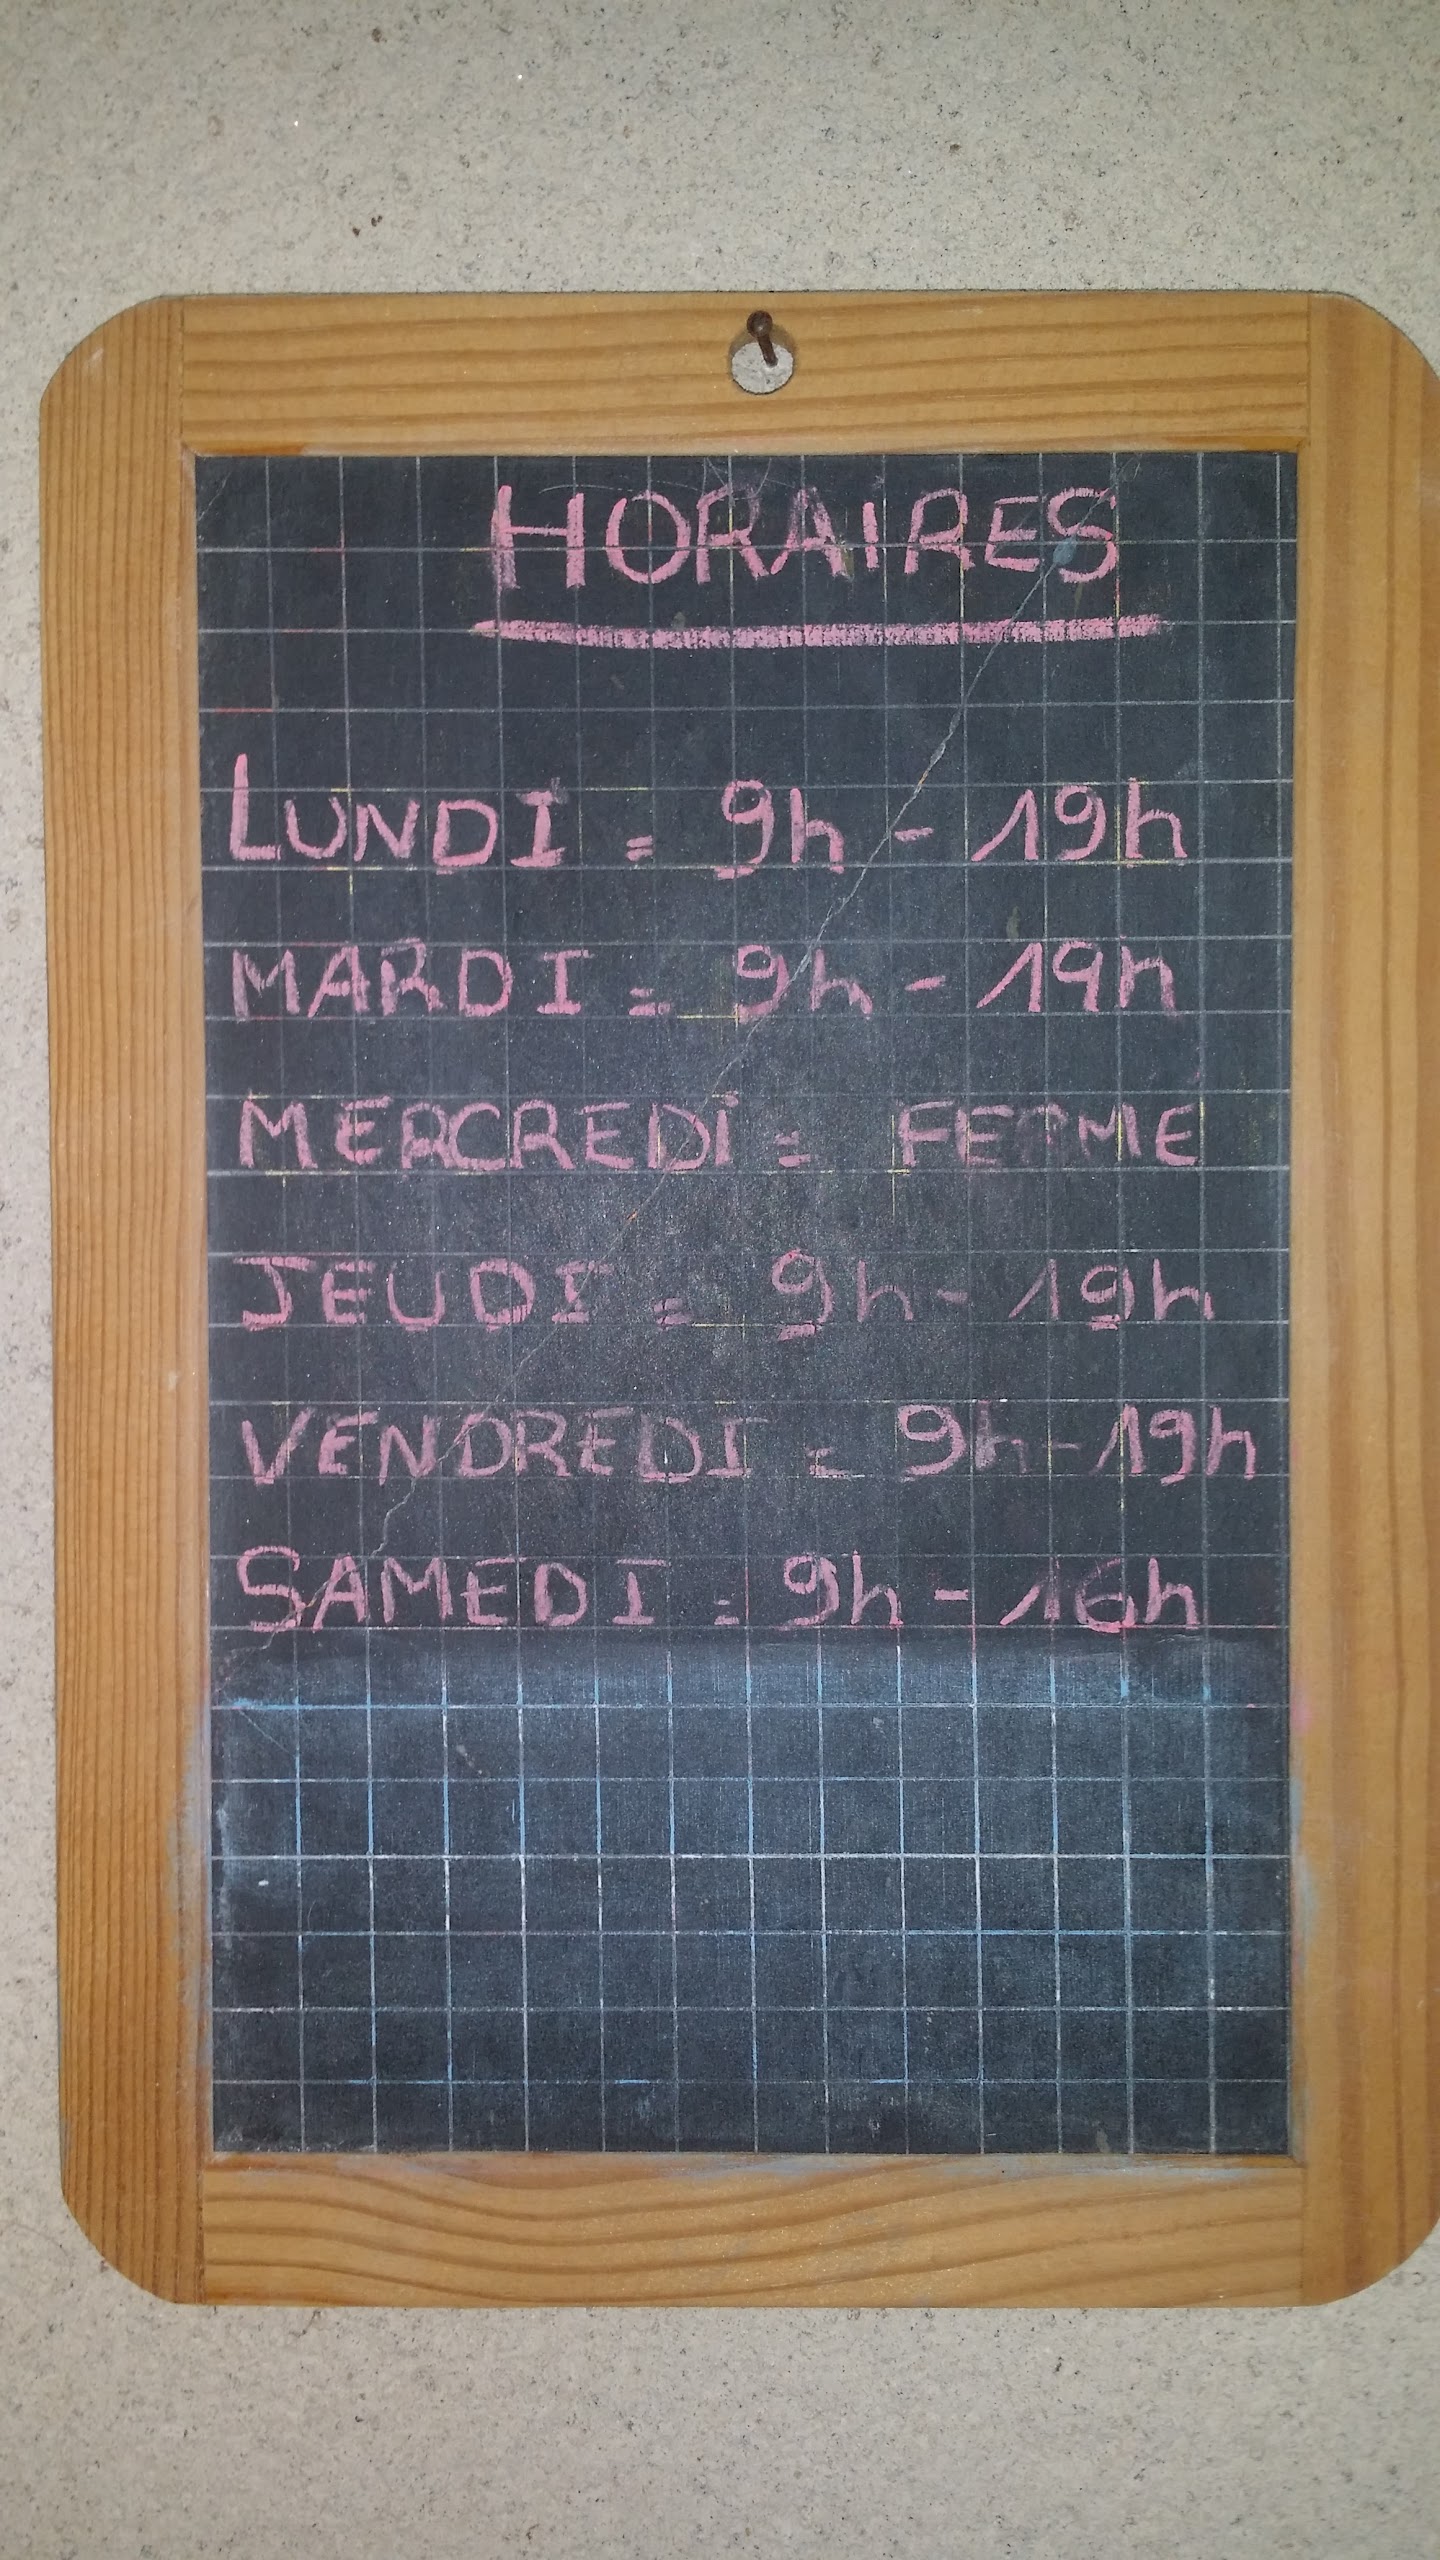 HORAIRES
LUNDI = 9h - 19h
MARDI = 9h - 19h
MERCREDI = FERME
JEUDI = 9h - 19h
VENDREDI = 9h - 19h
SAMEDI = 9h - 16h